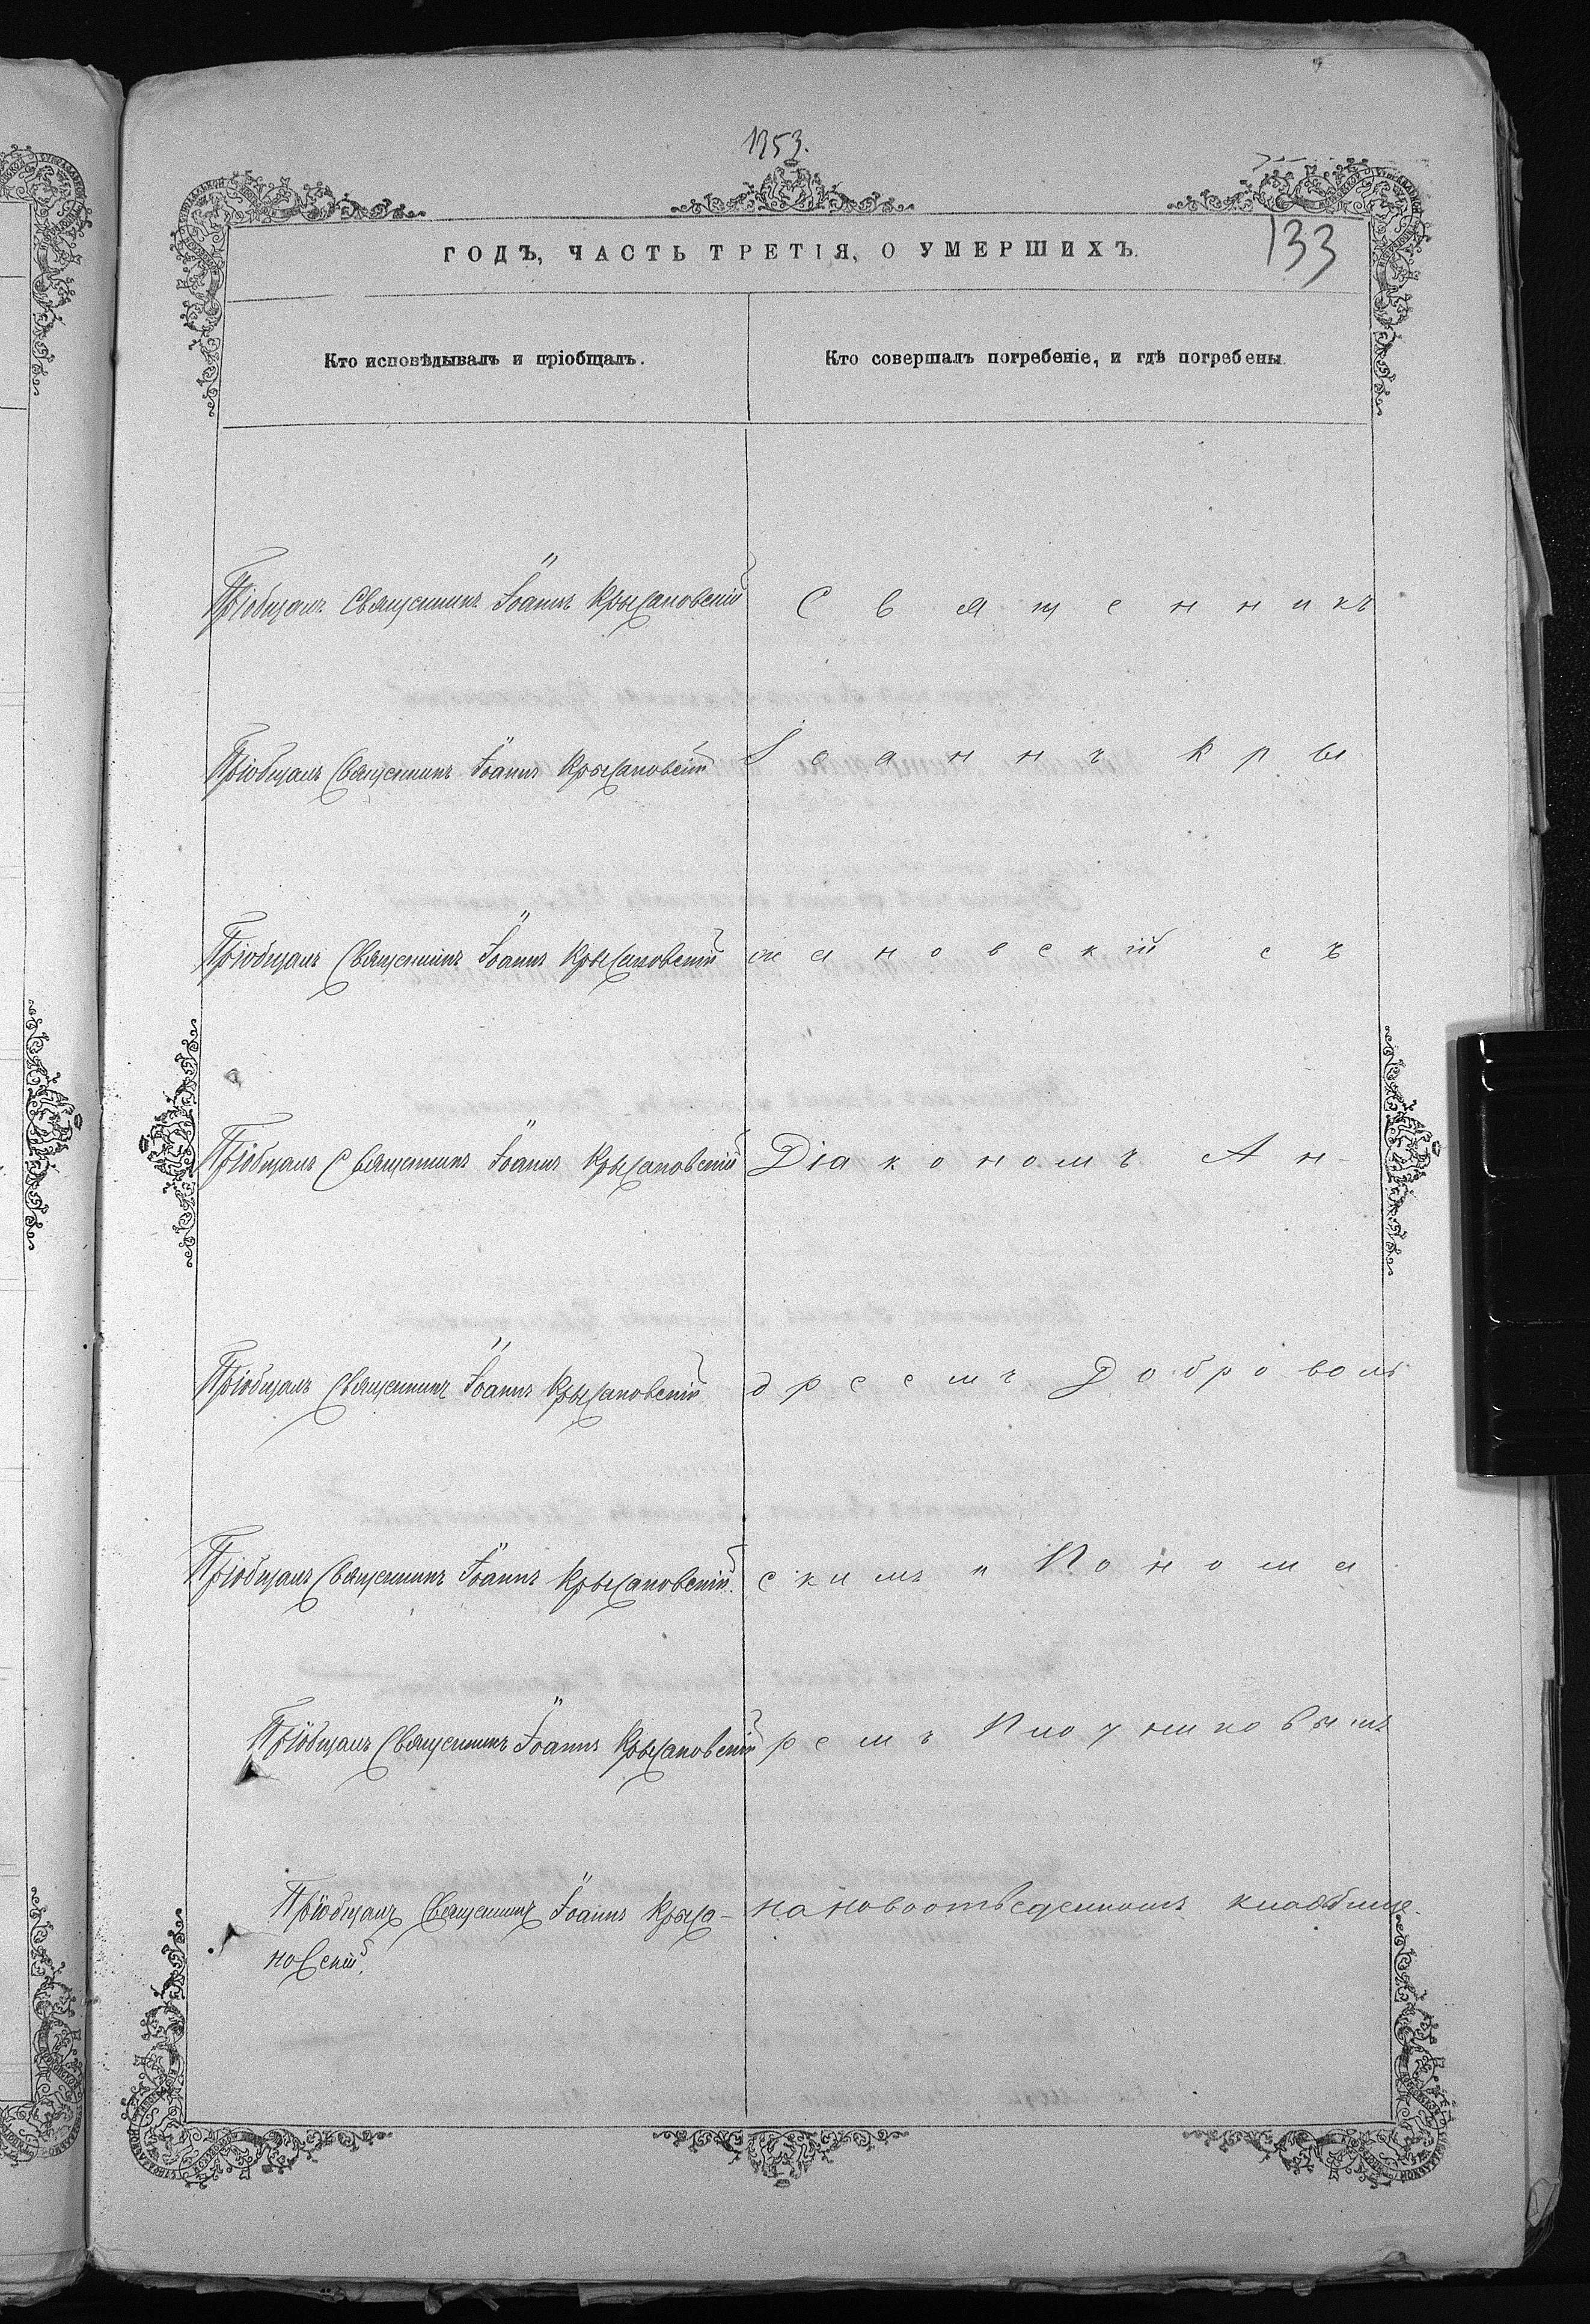 1353.
133
ГОДЪ, ЧАСТЬ ТРЕТІЯ, О УМЕРШИХЪ.
Кто исповѣдывалъ и пріобщалъ.
Кто совершалъ погребеніе, и гдѣ погребены.
Пріобщалъ Священникъ Іоаннъ Крыжановскій
Священникъ
Пріобщалъ Священникъ Іоаннъ Крыжановскій
Іоаннъ Кры
Пріобщалъ Священникъ Іоаннъ Крыжановскій
жановскій съ
Пріобщалъ Священникъ Іоаннъ Крыжановскій
Діакономъ Ан-
Пріобщалъ Священникъ Іоаннъ Крыжановскій
дреемъ Доброволь
Пріобщалъ Священникъ Іоаннъ Крыжановскій.
скимъ и Понома
Пріобщалъ Священникъ Іоаннъ Крыжановскій
ремъ
Пріобщалъ Священникъ Іоаннъ Крыжа-
новскій.
на новоотведенномъ кладбище.